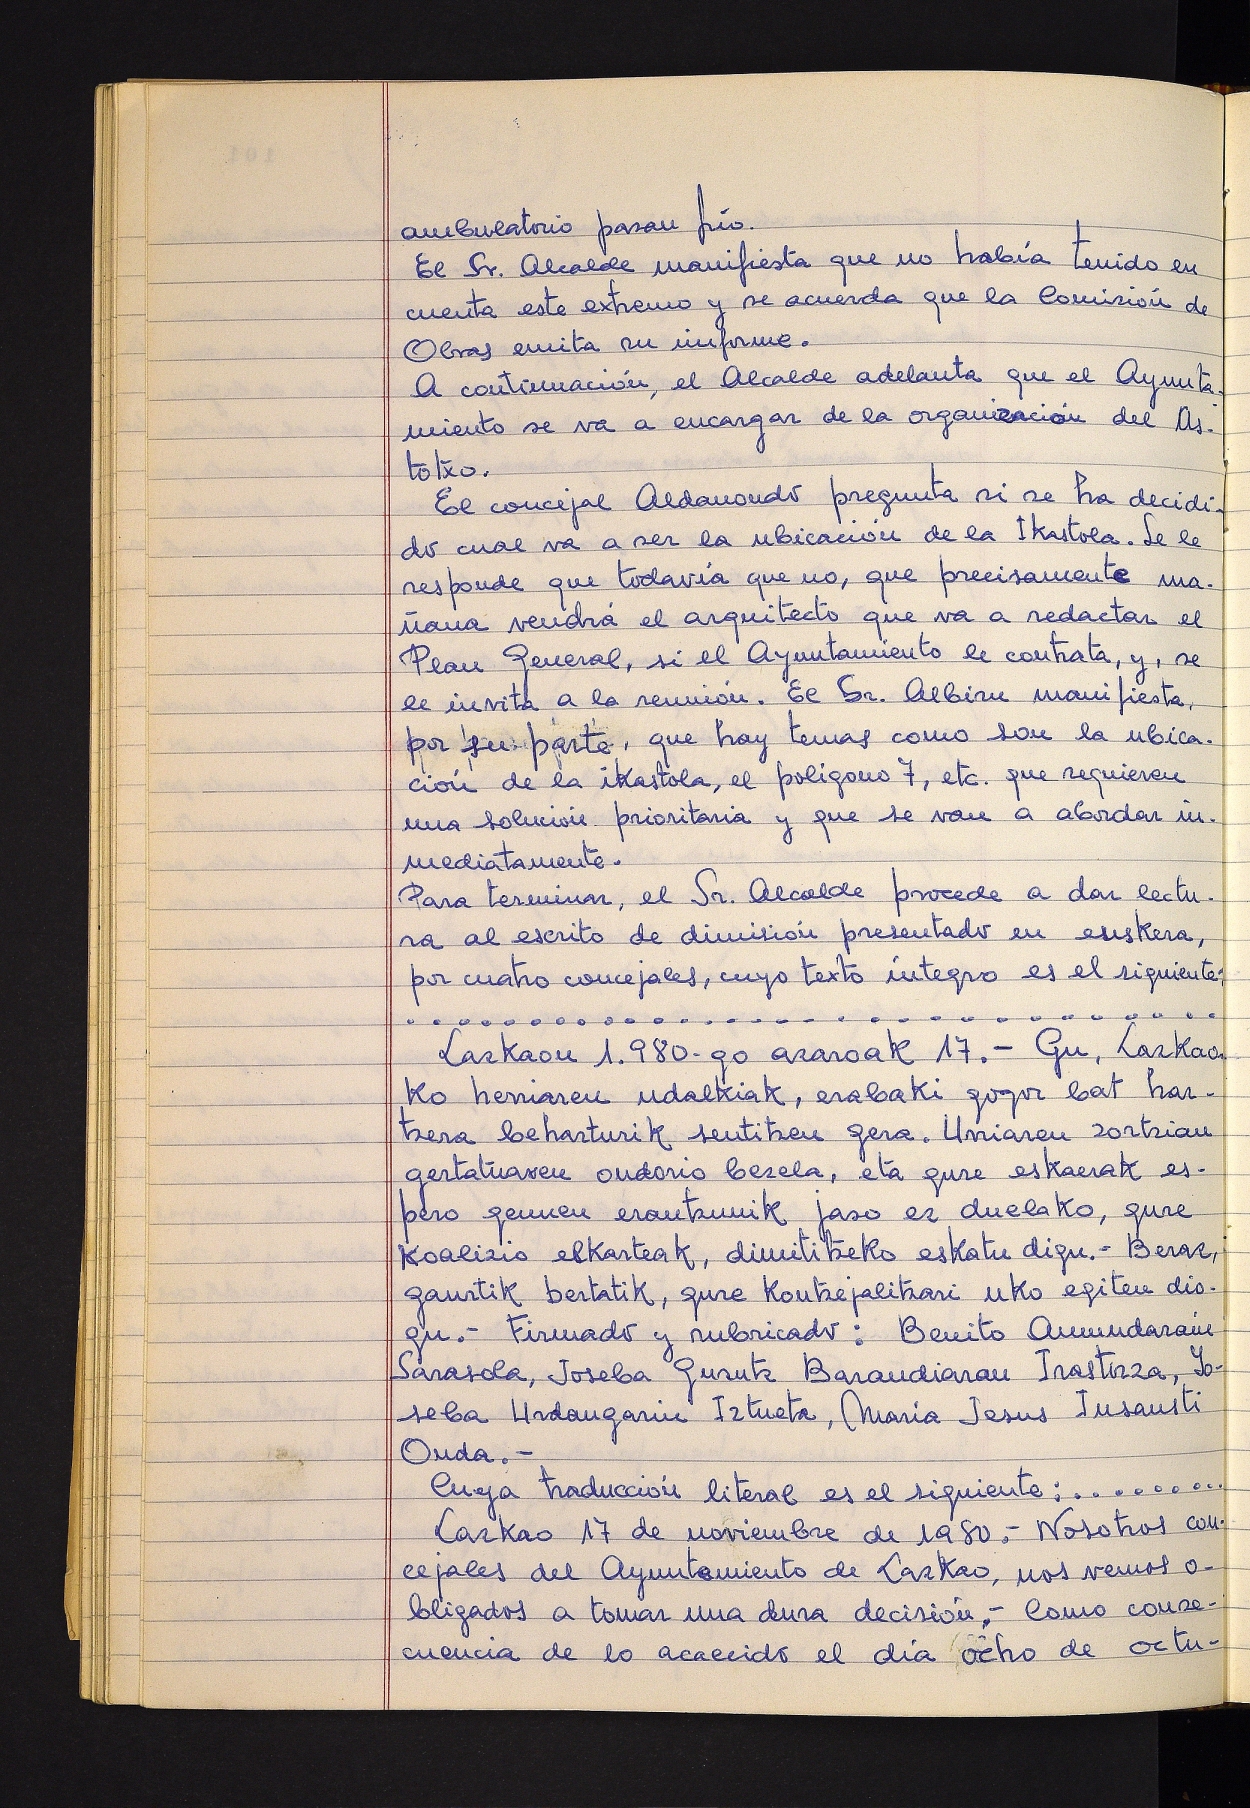 ambulatorio pasan frío.
El Sr. Alcalde manifiesta que no había tenido en
cuenta este extremo y se acuerda que la Comisión de
Obras emita su informe.
A continuación, el Alcalde adelanta que el Ayunta-
miento se va a encargar de la organización del As-
totxo.
El concejal Aldanondo pregunta si se ha decidi-
do cual va a ser la ubicación de la Ikastola. Se le
responde que todavía que no, que precisamente ma-
ñana vendrá el arquitecto que va a redactar el
Plan General, si el Ayuntamiento le contrata, y, se
le invita a la reunión. El Sr. Albizu manifiesta,
por su parte, que hay temas como son la ubica-
ción de la ikastola, el polígono 7, etc. que requieren
una solución prioritaria y que se van a abordar in-
mediatamente.
Para terminar, el Sr. Alcalde procede a dar lectu-
ra al escrito de dimisión presentado en euskera,
por cuatro concejales, cuyo texto íntegro es el siguiente:
Lazkaon 1.980-go azaroak 17.- Gu, Lazkao-
ko herriaren udalkiak, erabaki gogor bat har-
tzera beharturik sentitzen gera. Urriaren zortzian
gertatuaren ondorio bezela, eta gure eskaerak es-
pero genuen erantzunik jaso ez duelako, gure
Koalizio elkarteak, dimititzeko eskatu digu.- Beraz,
gaurtik bertatik, gure kontzejalitzari uko egiten dio-
gu.- Firmado y rubricado: Benito Amundarain
Sarasola, Joseba Gurutz Barandiaran Irastorza, Jo-
seba Urdangarin Iztueta, Maria Jesus Insausti
Onda.-
Cuya traducción literal es el siguiente:.........
Lazkao 17 de noviembre de 1980.- Nosotros con-
cejales del Ayuntamiento de Lazkao, nos vemos o-
bligados a tomar una dura decisión.- Como conse-
cuencia de lo acaecido el día ocho de octu-